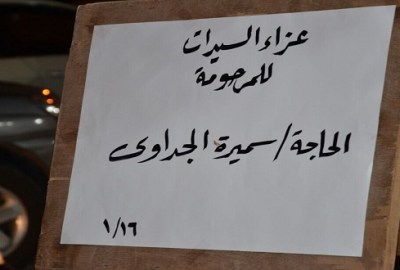 عزاء السيدات
للمرحومة
الحاجة/سميرة الجداوى
١/١٦